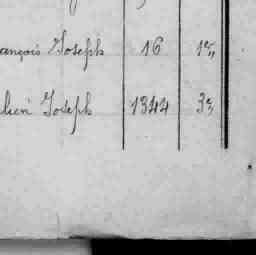 ançois Joseph 16
lien Joseph 1344